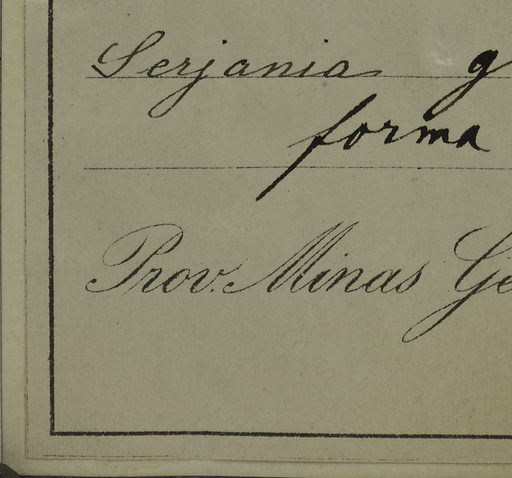 Serjania g
forma
Prov. Minas Ge